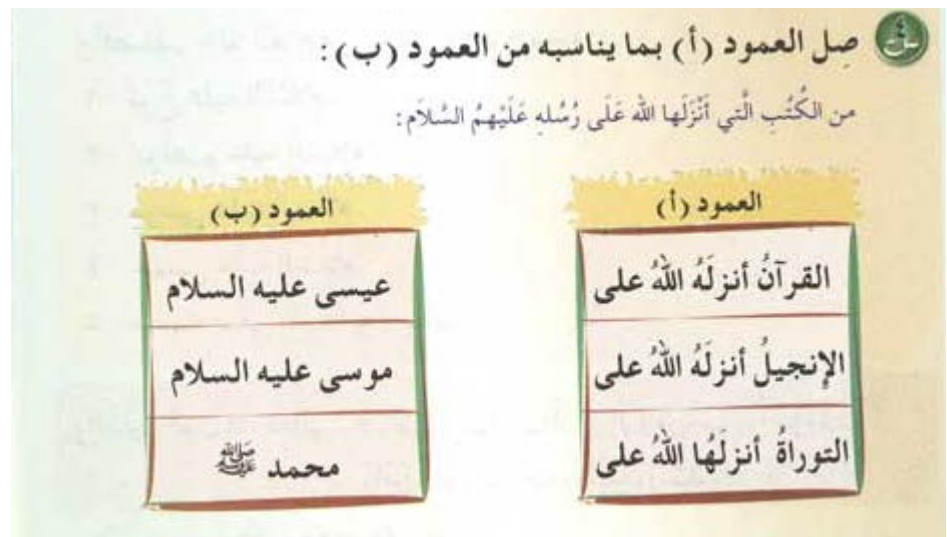 صِل العمود (أ) بما يناسبه من العمود (ب):
من الكُتُبِ الَّتي أَنْزَلَها الله عَلَى رُسُلهِ عَلَيْهِمُ السَّلاَم:
العمود (أ)
القرآنُ أنزلَهُ اللهُ على
الإنجيلُ أنزلَهُ اللهُ على
التوراةُ أنزلَهُا اللهُ على
العمود (ب)
عيسى عليه السلام
موسى عليه السلام
محمد ﷺ